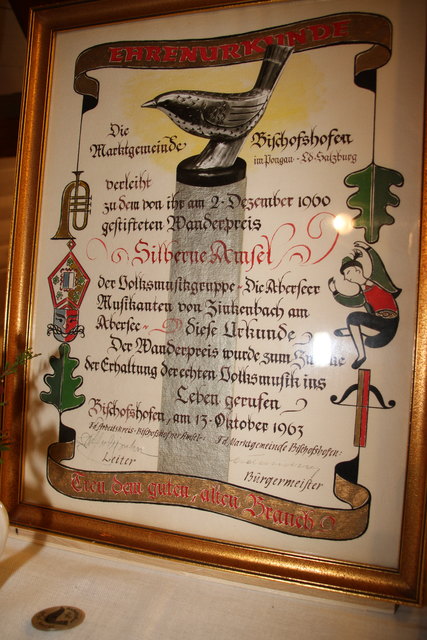 EHRENURKUNDE
Die
Marktgemeinde Bischofshofen
im Pongau - Ld. Salzburg
verleiht
zu dem von ihr am 2. Dezember 1960
gestifteten Wanderpreis
Silberne Amsel
der Volksmusikgruppe - Die Aberseer
Musikanten von Zinkenbach am
Abersee - diese Urkunde
Der Wanderpreis wurde zum
der Erhaltung der echten Volksmusik ins
Leben gerufen
Bischofshofen, am 13. Oktober 1963
F.d. Marktgemeinde Bischofshofen:
Leiter
Bürgermeister
Treu dem guten, alten Brauch